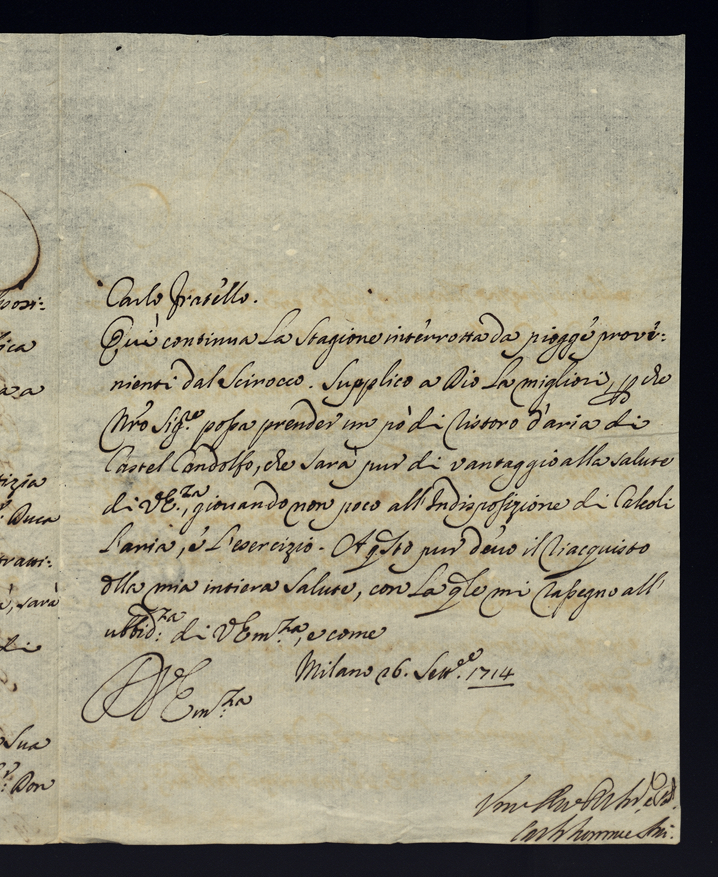 Carlo fratello.
Quì continua La Stagione interrotta da piogge prove:
nienti dal Scirocco. Supplico a Dio La migliori, p che
Nro Sig.re possa prender un pò di ristoro d'aria di
Castel Gandolfo, che sarà pur di vantaggio alla salute
di VE.za, giouando non poco all'Indisposizione di Calcoli
L'aria, e L'esercizio. A qsto pur deuo il riacquisto
dlla mia intiera Salute, con La qle mi rassegno all'
ubbid:za di VEm.za, e come
Milano 26. Sett.e 1714
Di VEm.za
posi:
ica
a a
tizia
Duca
traui:
à, sarà
di
Sua
Don